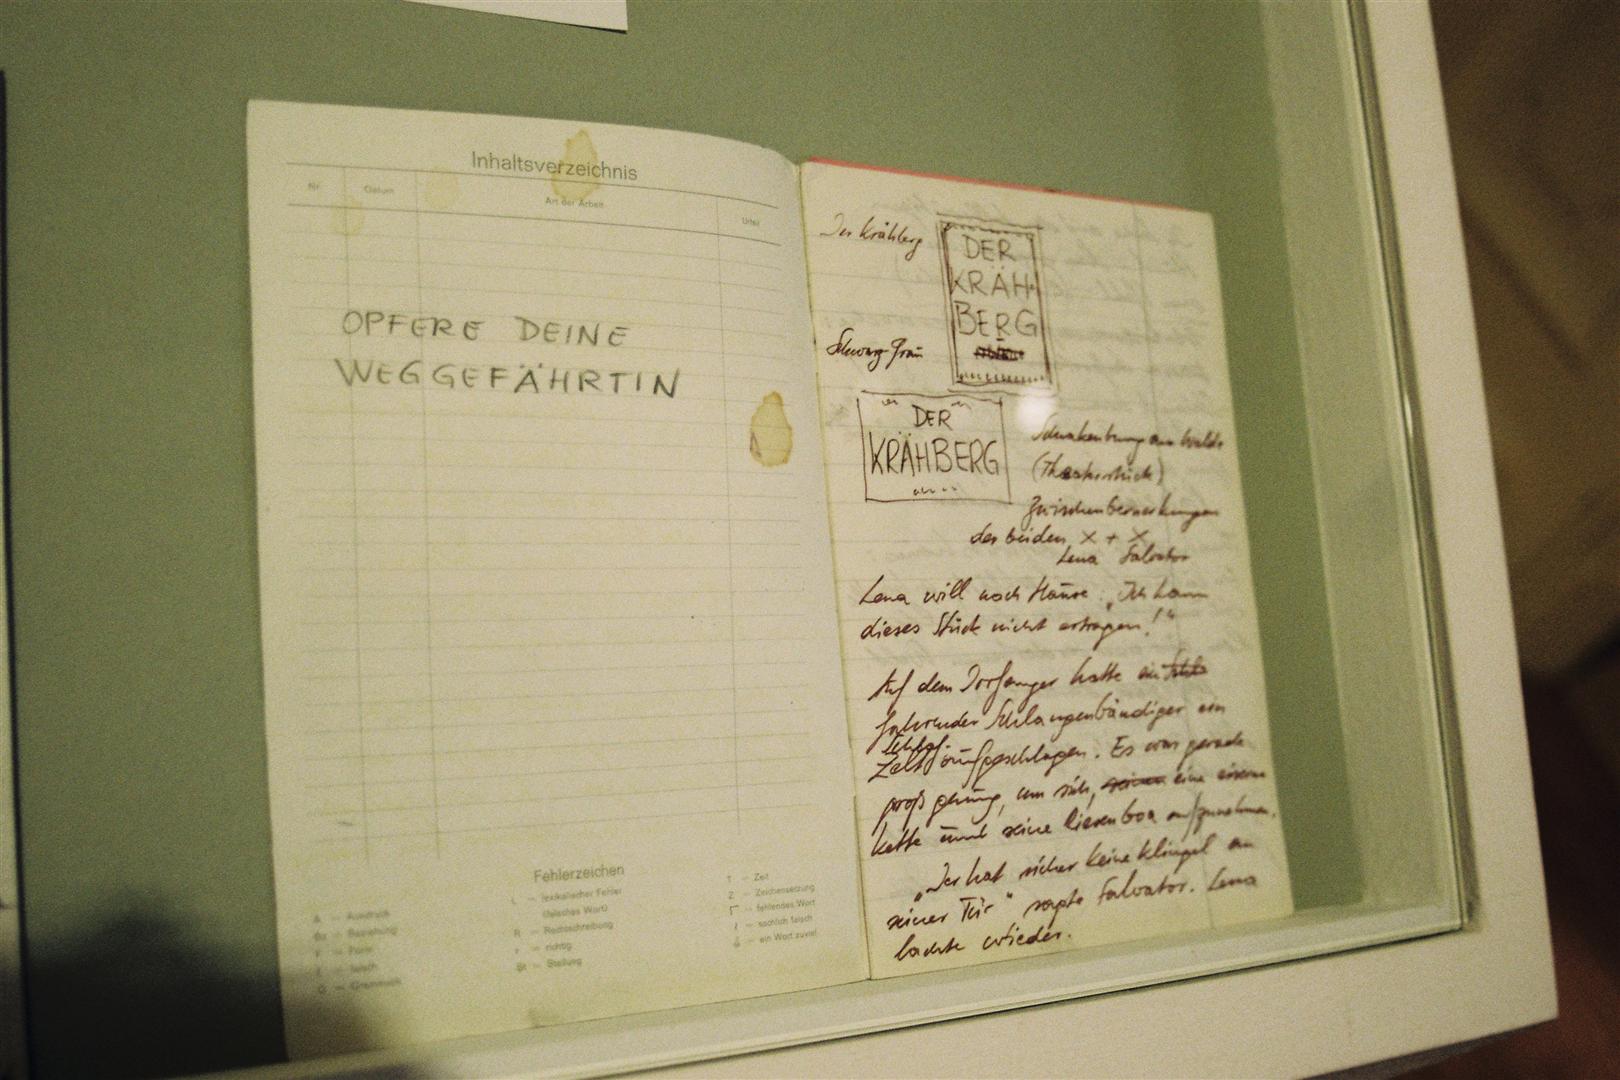 Inhaltsverzeichnis
Nr
Datum
Art der Arbeit
Urteil
OPFERE DEINE
WEGGEFÄHRTIN
Fehlerzeichen
A — Ausdruck
Bz — Beziehung
F — Form
f — falsch
G — Grammatik
L — lexikalischer Fehler
(falsches Wort)
R — Rechtschreibung
r — richtig
St — Stellung
T — Zeit
Z — Zeichensetzung
Γ — fehlendes Wort
— sachlich falsch
— ein Wort zuviel
Der Krähberg
DER
KRÄH-
BERG
Schwarz Grün
DER
KRÄHBERG
am Walde
(Theaterstück)
Zwischenbemerkungen
der beiden X + X
Lena Salvator
Lena will nach Hause. „Ich kann
dieses Stück nicht ertragen!“
Auf dem Dorfanger hatte ein
fahrender Schlangenbändiger ein
Schlaf
Zelt aufgeschlagen. Es war gerade
groß genug, um sich, seine eine eiserne
Kette und seine Riesenboa aufzunehmen.
„Der hat sicher keine Klingel an
seiner Tür“ sagte Salvator. Lena
lachte wieder.